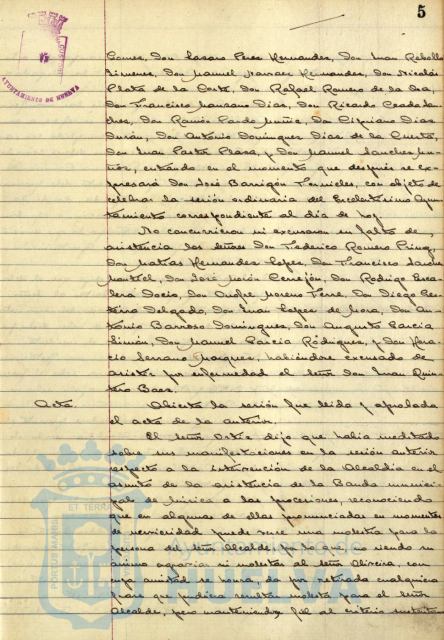 5
AYUNTAMIENTO DE HUELVA
Gomez, Don Lazaro Perez Hernandez, Don Juan Rebollo
Jimenez, Don Manuel Narvaez Hernandez, Don Nicolás
Plata de la Corte, Don Rafael Romero de la
Don Francisco Manzano Dias, Don Ricardo
ches, Don Ramón Pardo Muñiz, Don Cipriano Dias
Durán, Don Antonio Dominguez Dias de la
Don Juan Pastor Plaza, y Don Manuel Sanchez Mu-
ñoz, entrando en el momento que después se ex-
presará Don José Barrigón Fornieles, con objeto de
celebrar la sesión ordinaria del Excelentísimo Ayun-
tamiento correspondiente al dia de hoy
No concurrieron ni excusaron su falta de
asistencia los señores Don Federico Romero
Don Matias Hernandez Lopez, Don Francisco
Don José Morón Cerrejón, Don Rodrigo Esca-
Don Onofre Moreno Don Diego
Delgado, Don Juan Lopez de Mora, Don An-
tonio Barroso Dominguez, Don Augusto Garcia
Simón, Don Manuel Garcia Rodriguez, y Don Hora-
cio Serrano Marquez, habiéndose excusado de
asistir por enfermedad el señor Don Juan Quin-
tero Baez.
Acta. Abierta la sesión fue leida y aprobada
el acta de la anterior.
El señor Ortiz dijo que habia meditado
sobre sus manifestaciones en la sesión anterior
respecto a la intervención de la Alcaldia en el
asunto de la asistencia de la Banda munici-
pal de música a las procesiones, reconociendo
que en algunas de ellas pronunciadas en momentos
de nerviosidad puede verse una molestia para la
persona del señor Alcalde, por lo que no siendo su
animo agraviar ni molestar al señor Oliveira, con
cuya amistad se honra, da por retirada cualquiera
frase que pudiera resultar molesta para el señor
Alcalde, pero manteniendose fiel al criterio sustentado
PORTUS MARIS ET TERRAE CUSTODIA
Ayuntamiento de
HUELVA